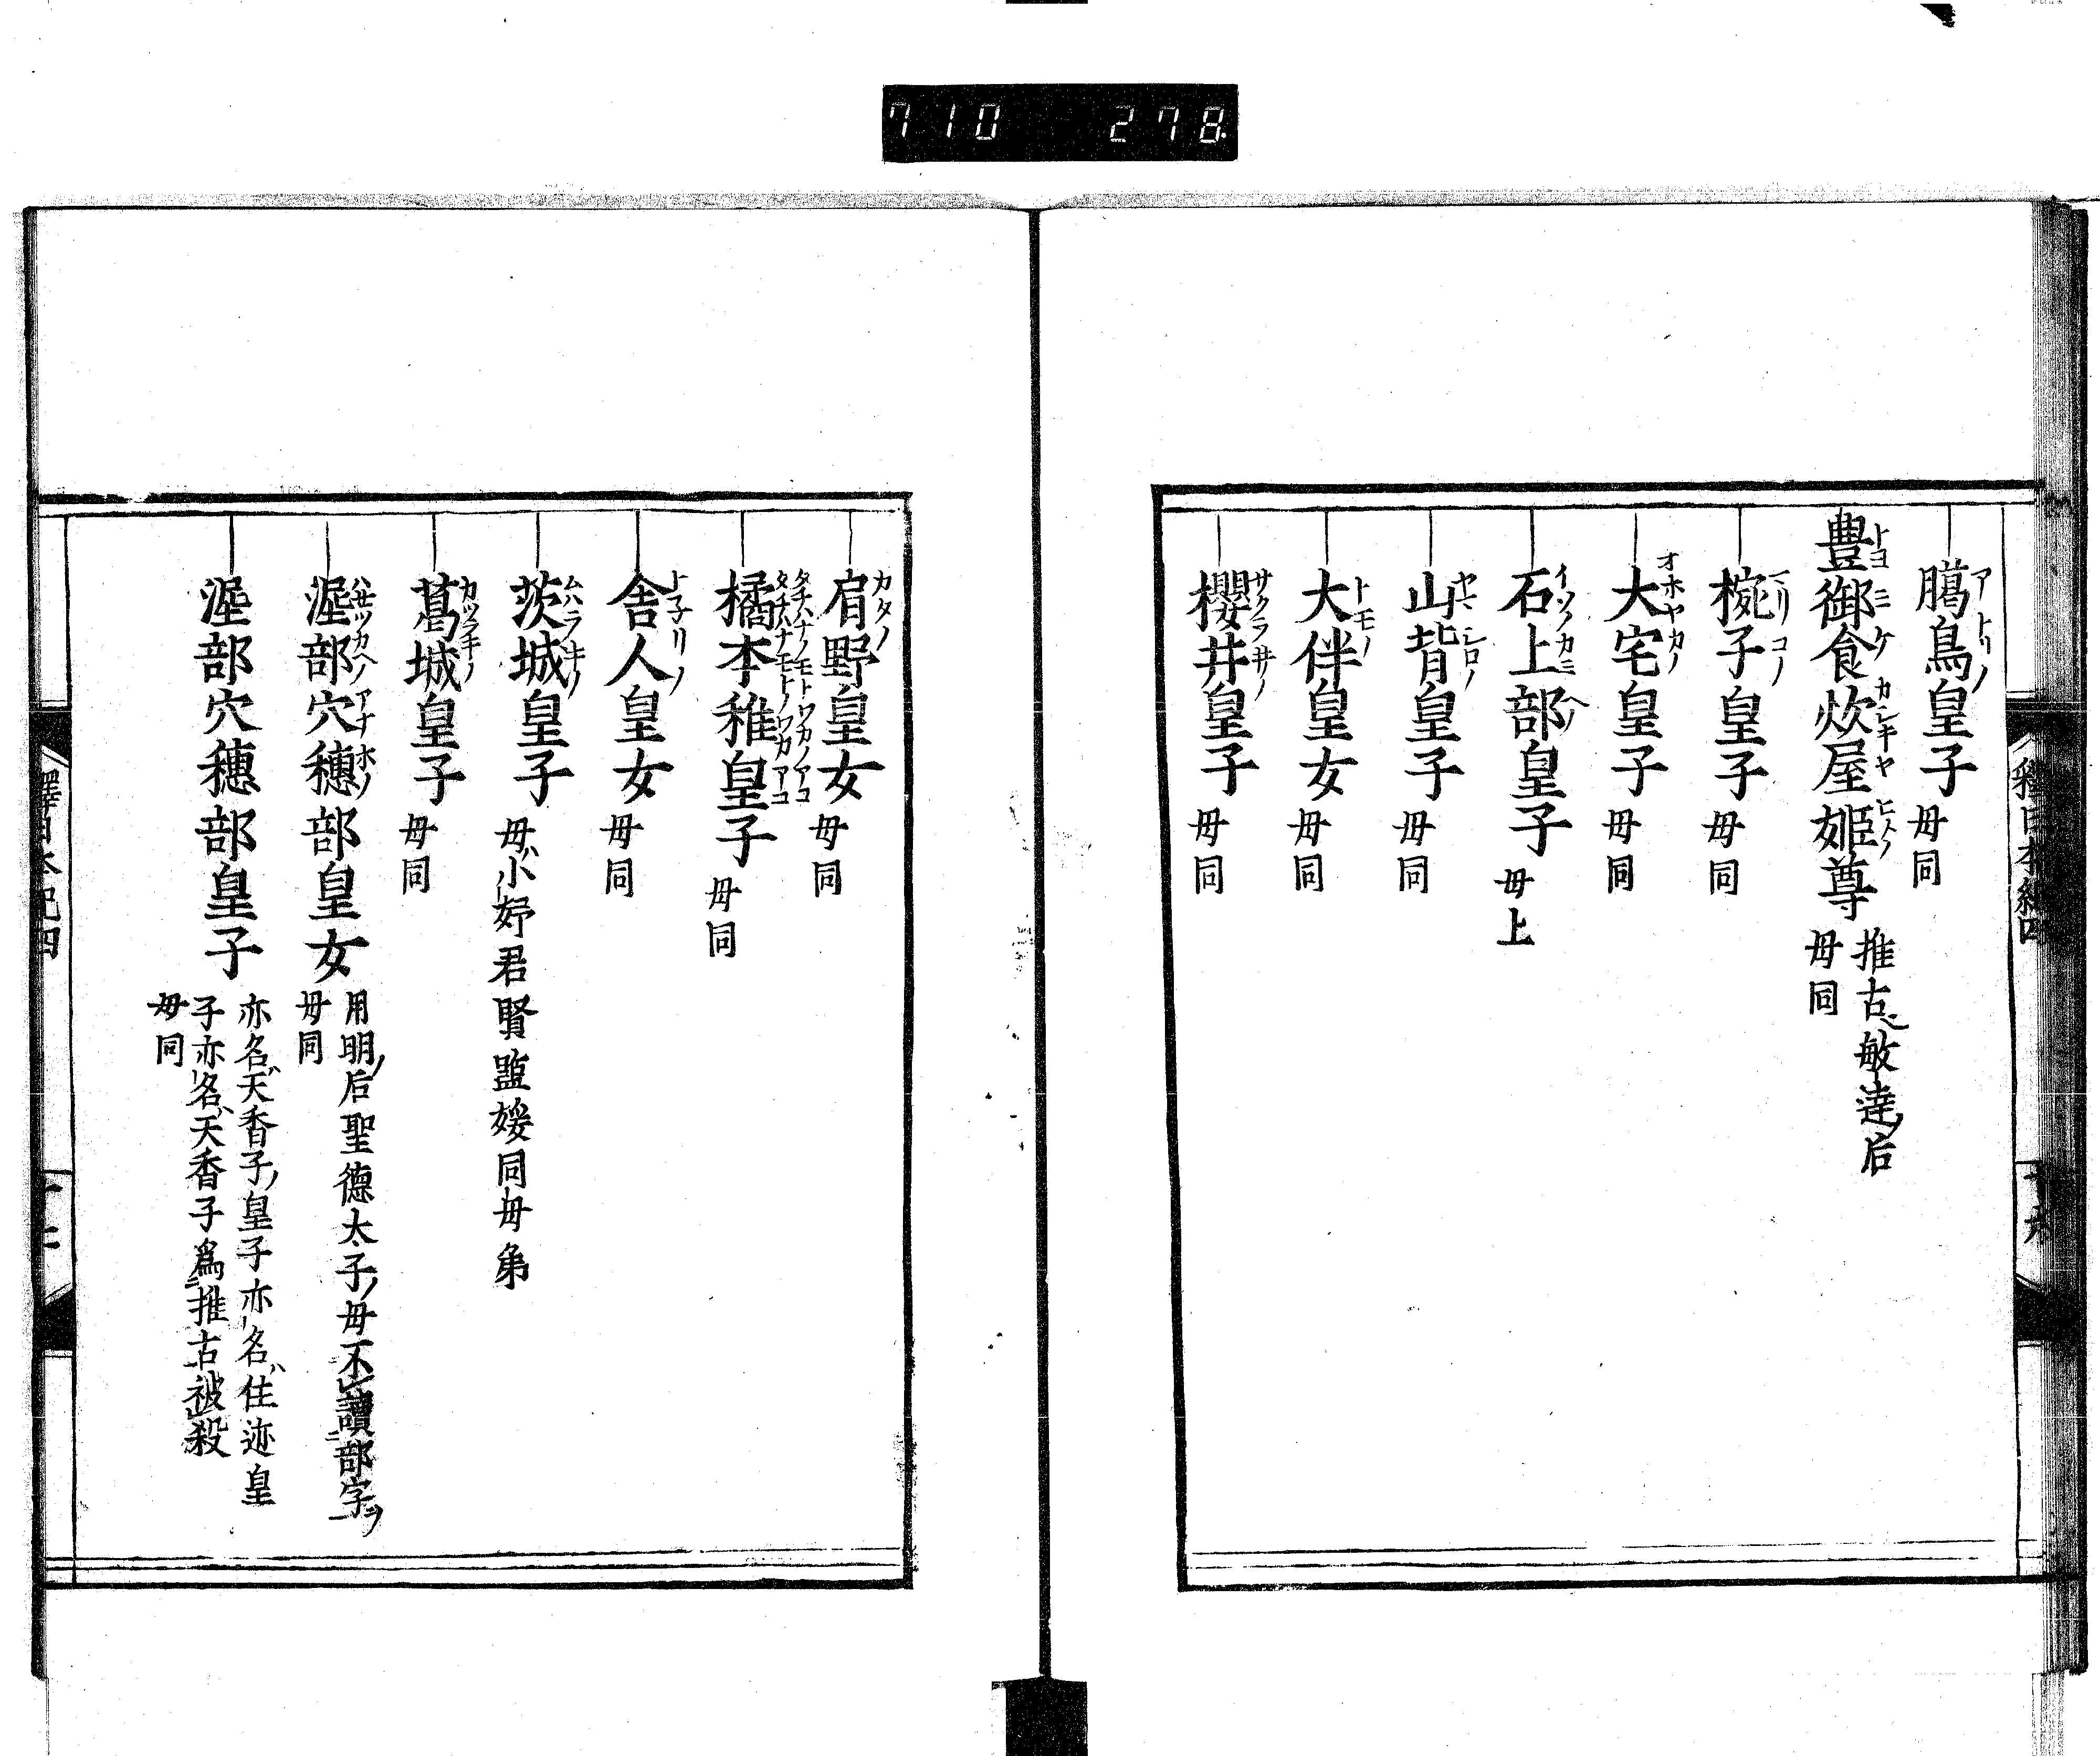 710 278
臈鳥皇子 母同
豊御食炊屋姫尊 推古敏達后
母同
椀子皇子 母同
大宅皇子 母同
石上部皇子 母上
山背皇子 母同
大伴皇女 母同
櫻井皇子 母同
肩野皇女 母同
橘本稚皇子 母同
舎人皇女 母同
茨城皇子 母小姉君賢塩媛同母弟
葛城皇子 母同
埿部穴穂部皇女 用明后聖徳太子母不讀部字
母同
埿部穴穂部皇子 亦名天香子皇子亦名住迹皇
子亦名天香子為推古被殺
母同